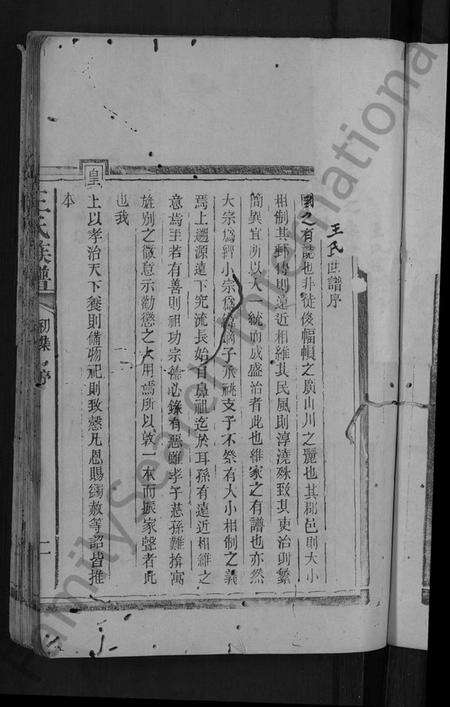 王氏世譜序
國之有誌也非徒侈幅幀之廣山川之麗也其都邑則大小
相制其郵傳則遠近相維其民風則淳澆殊致其吏治則繁
簡異宜所以大一統而成盛治者此也維家之有譜也亦然
大宗為經小宗為緯嫡子承祧支子不祭有大小相制之義
焉上溯源遠下究流長始自鼻祖迄於耳孫有遠近相維之
意焉至若有善則祖功宗德必錄有惡雖孝子慈孫難揜寓
旌別之微意示勸懲之大用焉所以敦一本而振家聲者此
也我
皇
上以孝治天下養則備物祀則致慤凡恩賜綸赦等詔皆推
本
王氏族譜
初集
序
二
FamilySearch International